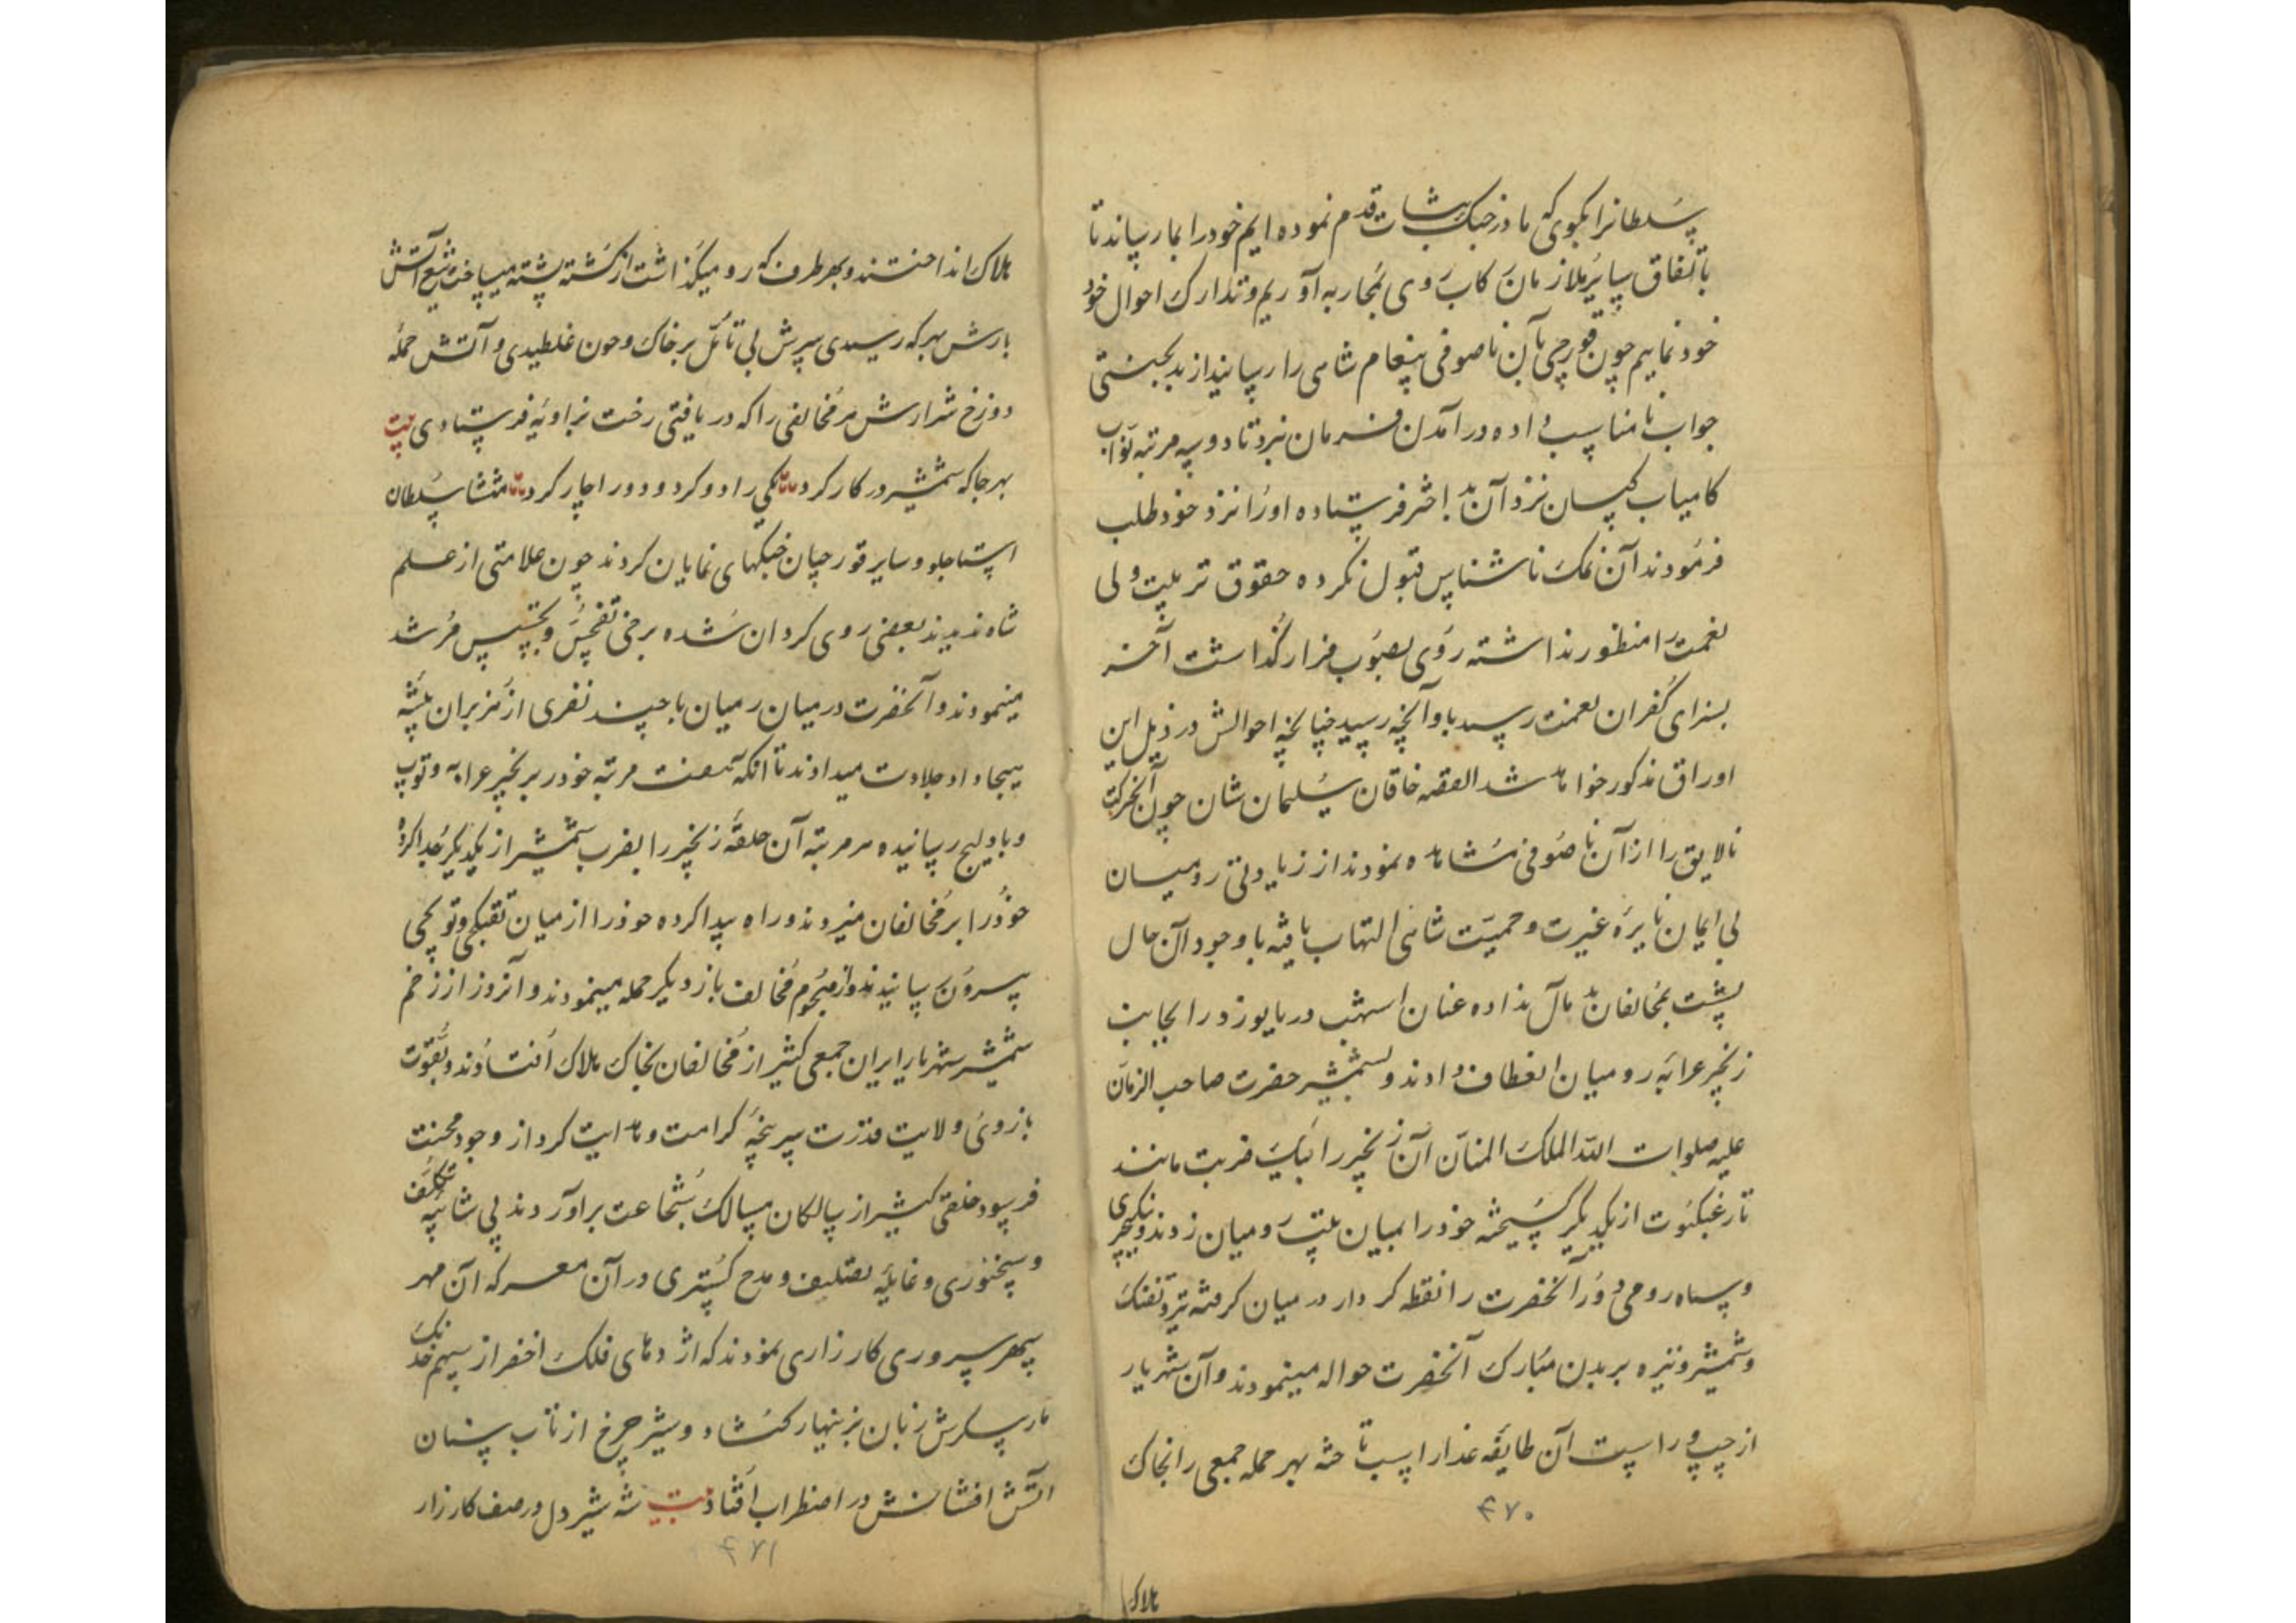 سلطانرا بگوی که ما در جنک ثبات قدم نموده ایم خود را بما رساند تا
باتفاق سایر ملازمان کاب روی بمحاربه آوریم و تدارک احوال خود
خود نماییم چون قورچی بآن ناصوفی پیغام شاهی را رسانید از بدبختی
جواب نامناسب داده در آمدن فرمان نبرد تا دو سه مرتبه نواب
کامیاب کسان نزد آن بد اختر فرستاده او را نزد خود طلب
فرمودند آن نمک ناشناس قبول نکرده حقوق تربیت ولی
نعمت را منظور نداشته روی بصوب فرار گذاشت آخر
بسزای کفران نعمت رسید باو آنچه رسید چنانچه احوالش در ذیل این
اوراق مذکور خواهد شد القصه خاقان سلیمان شان چون آن حرکت
نالایق را از آن ناصوفی مشاهده نمودند از زیادتی رومیان
بی ایمان نایره غیرت و حمیت شاهی التهاب یافته با وجود آن حال
پشت بمخالفان بد مآل نداده عنان اسهب دریا یورد را بجانب
زنجیر عرابه رومیان انعطاف دادند و بشمشیر حضرت صاحب الزمان
علیه صلوات الله الملک المنان آن زنجیر را بیک ضربت مانند
تار عنکبوت از یکدیکر کسیخته خود را بمیان رومیان زدند و ینکیچری
و سپاه رومی دور آنحضرت را نقطه کردار در میان کرفته تیر و تفنک
و شمشیر و نیزه بر بدن مبارک آنحضرت حواله مینمودند و آن شهریار
از چپ و راست آن طایفه غدار اسب تاخته بهر حمله جمعی را بخاک
۴۷۰
هلاک
هلاک انداختند و بهر طرف که رو میکذاشت از کشته پشته میساخت تیغ آتش
بارش بهر که رسیدی سرش بی تأمل بر خاک و خون غلطیدی و آتش حمله
دوزخ شرارش هر مخالفی را که دریافتی رخت بزاویه فرستادی بیت
بهر جا که شمشیر در کار کرد یکی را دو کرد و دو را چار کرد منتشا سلطان
استاجلو و سایر قورچیان جنکهای نمایان کردند چون علامتی از علم
شاه ندیدند بعضی روی کردان شده برخی تفحص و تجسس مرشد
مینمودند و آنحضرت در میان رومیان با چند نفری از هزبران بیشه
هیجا داد جلادت میدادند تا آنکه هفت مرتبه خود را بر زنجیر عرابه و توپ
و بادلیج رسانیده هر مرتبه آن حلقه زنجیر را بضرب شمشیر از یکدیکر جدا کرده
خود را بر مخالفان میزدند و راه پیدا کرده خود را از میان تفنکچی و توپچی
بیرون رسانیدند و از هجوم مخالف باز دیکر حمله مینمودند و آنروز از زخم
شمشیر شهریار ایران جمعی کثیر از مخالفان بخاک هلاک افتادند و بقوت
بازوی ولایت قدرت سر پنجه کرامت و هدایت کرد از وجود محنت
فرسود خلقی کثیر از سالکان مسالک شجاعت برآوردند بی شائبه تکلف
و سخنوری و غایله تصلیف و مدح کستری در آن معرکه آن مهر
سپهر سروری کارزاری نمودند که اژدهای فلک اخضر از سهم خدنک
مار پیکرش زبان بزینهار کشاد و شیر چرخ از تاب سنان
آتش افشانش در اضطراب افتاد بیت شه شیردل در صف کارزار
۴۷۱